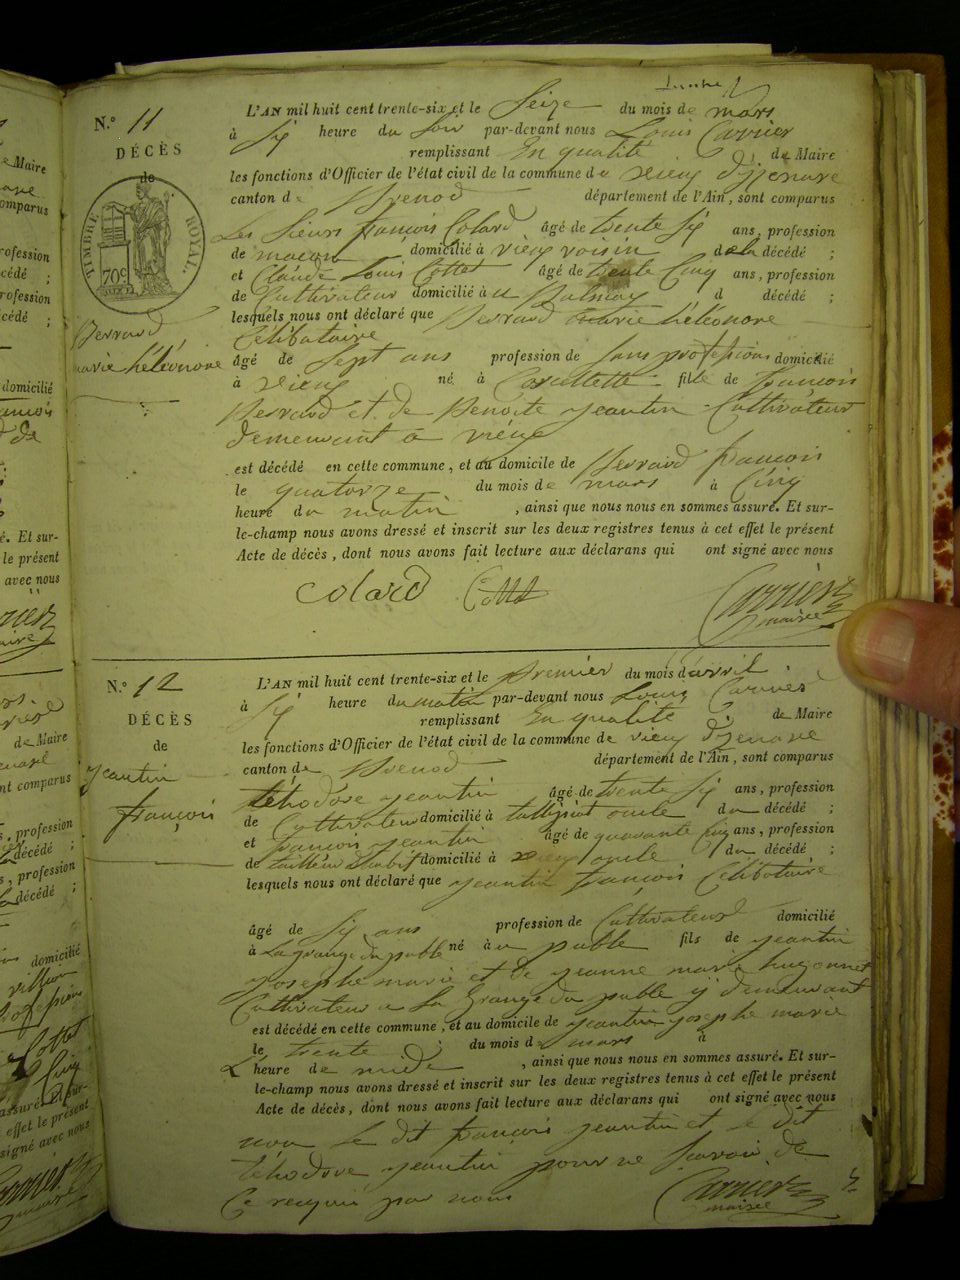 N.° 11
DÉCÈS
de
TIMBRE ROYAL.
70c
Perrard
marie héléonore
L'AN mil huit cent trente-six et le Seize du mois de mars
à Six heure du Soir par-devant nous Louis Carrier
remplissant En qualité de Maire
les fonctions d'Officier de l'état civil de la commune de vieux d'Izenave
canton de Brenod département de l'Ain, sont comparus
Les Sieurs françois Colard âgé de trente Six ans, profession
de maçon domicilié à vieux voisin de la décédé ;
et Claude Louis Cottet âgé de trente Cinq ans, profession
de Cultivateur domicilié à d décédé ;
lesquels nous ont déclaré que Perrard marie héléonore
Célibataire
âgé de Sept ans profession de Sans profession domicilié
à vieux né à fille de françois
Perrard et de Benoite jeantin Cultivateur
demeurant à vieux
est décédé en cette commune, et au domicile de Perrard françois
le quatorze du mois de mars à Cinq
heure du matin , ainsi que nous nous en sommes assuré. Et sur-
le-champ nous avons dressé et inscrit sur les deux registres tenus à cet effet le présent
Acte de décès, dont nous avons fait lecture aux déclarans qui ont signé avec nous
Colard Cottet Carrier
maire
N.° 12
DÉCÈS
de
jeantin
françois
L'AN mil huit cent trente-six et le Premier du mois d'avril
à Six heure du matin par-devant nous Louis Carrier
remplissant En qualité de Maire
les fonctions d'Officier de l'état civil de la commune de vieux d'Izenave
canton de Brenod département de l'Ain, sont comparus
téhodore jeantin âgé de trente Six ans, profession
de Cultivateur domicilié à oncle du décédé ;
et françois jeantin âgé de quarante Cinq ans, profession
de tailleur d'habit domicilié à vieux oncle du décédé ;
lesquels nous ont déclaré que jeantin françois Célibataire
âgé de Six ans profession de Cultivateur domicilié
à La grange du pable né à au pable fils de jeantin
josephe marie et de jeanne marie hugonnet
Cultivateur a La Grange du pable y demeurant
est décédé en cette commune, et au domicile de jeantin josephe marie
le trente du mois de mars à
L'heure de midi , ainsi que nous nous en sommes assuré. Et sur-
le-champ nous avons dressé et inscrit sur les deux registres tenus à cet effet le présent
Acte de décès, dont nous avons fait lecture aux déclarans qui ont signé avec nous
non le dit françois jeantin et le dit
téhodore jeantin pour ne Savoir de
Ce requis par nous Carrier
maire